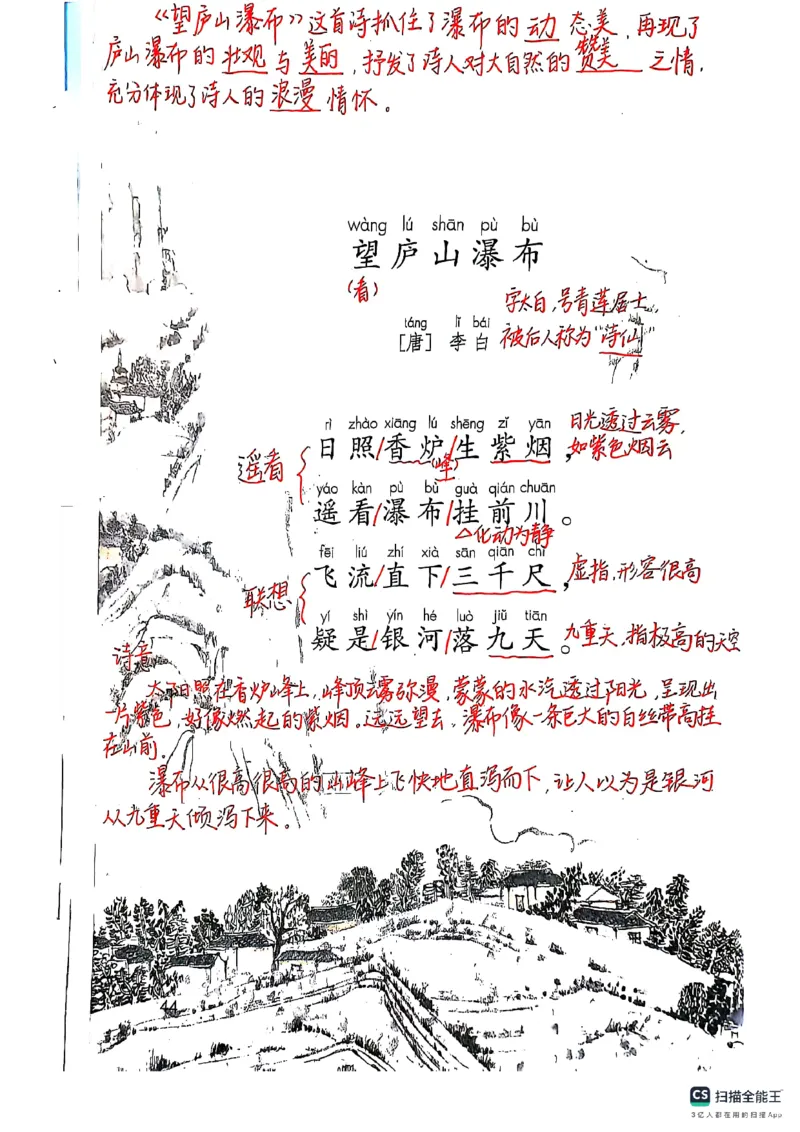 《望庐山瀑布》这首诗抓住了瀑布的动态美，再现了
庐山瀑布的壮观与美的，抒发了诗人对大自然的赞美之情，
充分体现了诗人的浪漫情怀。
wàng lú shān pù bù
望庐山瀑布
(看)
字太白，号青莲居士，
táng lǐ bái
[唐] 李白 被后人称为“诗仙”
rì zhào xiāng lú shēng zǐ yān
日照/香炉/生紫烟，
(峰)
日光透过云雾，
如紫色烟云
遥看
yáo kàn pù bù guà qián chuān
遥看/瀑布/挂前川。
△化动为静
fēi liú zhí xià sān qiān chǐ
飞流/直下/三千尺，虚指，形容很高
联想
yí shì yín hé luò jiǔ tiān
疑是/银河/落九天。九重天，指极高的天空
诗意
太阳照在香炉峰上，峰顶云雾弥漫，蒙蒙的水汽透过阳光，呈现出
一片紫色，好像燃起的紫烟。远远望去，瀑布像一条巨大的白丝带高挂
在山前。
瀑布从很高很高的山峰上飞快地直泻而下，让人以为是银河
从九重天倾泻下来。
CS 扫描全能王
3亿人都在用的扫描App